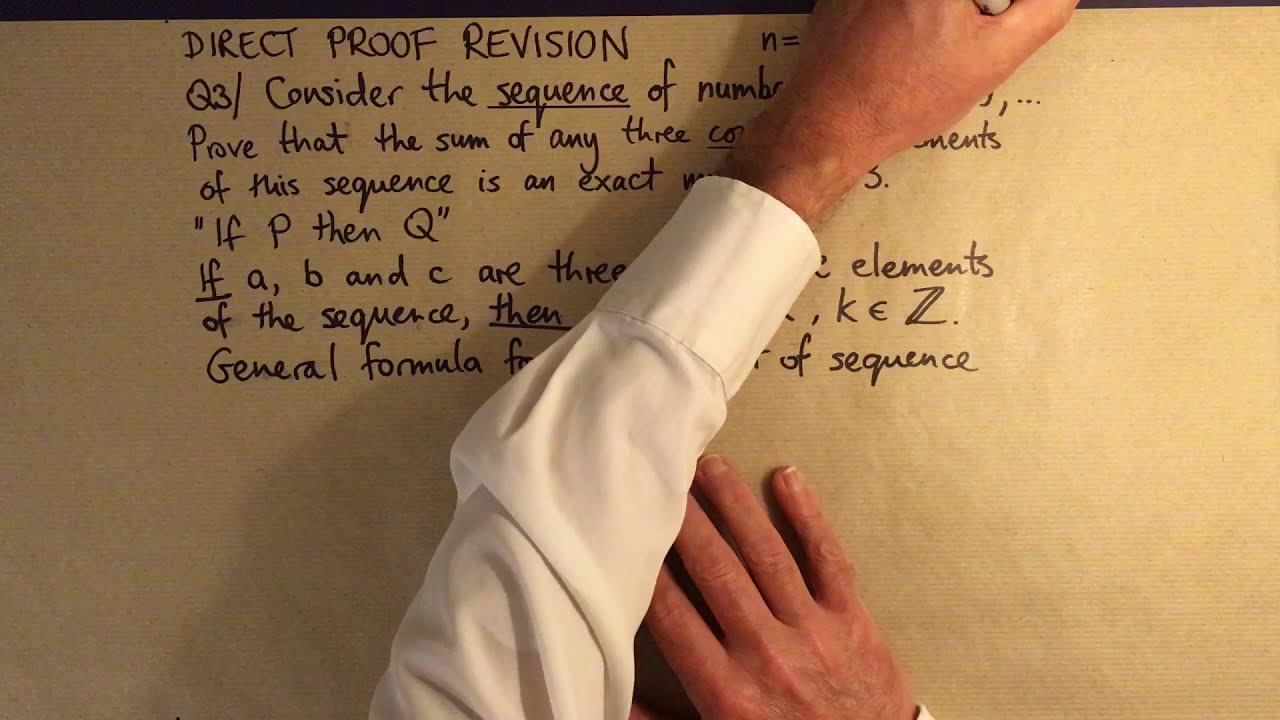 DIRECT PROOF REVISION n=
Q3/ Consider the sequence of ,...
Prove that the sum of any three
of this sequence is an exact 3.
"If P then Q"
If a, b and c are three elements
of the sequence, then , k ∈ ℤ.
General formula of sequence